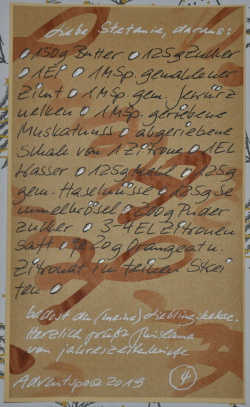 Liebe Stefanie, daraus:
○ 150g Butter ○ 125g Zucker
○ 1 Ei ○ 1 Msp. gemahlener
Zimt ○ 1 Msp. gem. Gewürz
nelken ○ 1 Msp. geriebene
Muskatnuss ○ abgeriebene
Schale von 1 Zitrone ○ 1 EL
Wasser ○ 125g Mehl ○ 125g
gem. Haselnüsse ○ 125g Se
mmelbrösel ○ 200g Puder
zucker ○ 3-4 EL Zitronen
saft ○ je 20g Orangeat u.
Zitronat in feinen Strei
fen ○
(meine) Lieblingskekse.
Herzlich grüßt
von jahreszeitenbriefe
Adventspost 2019 4